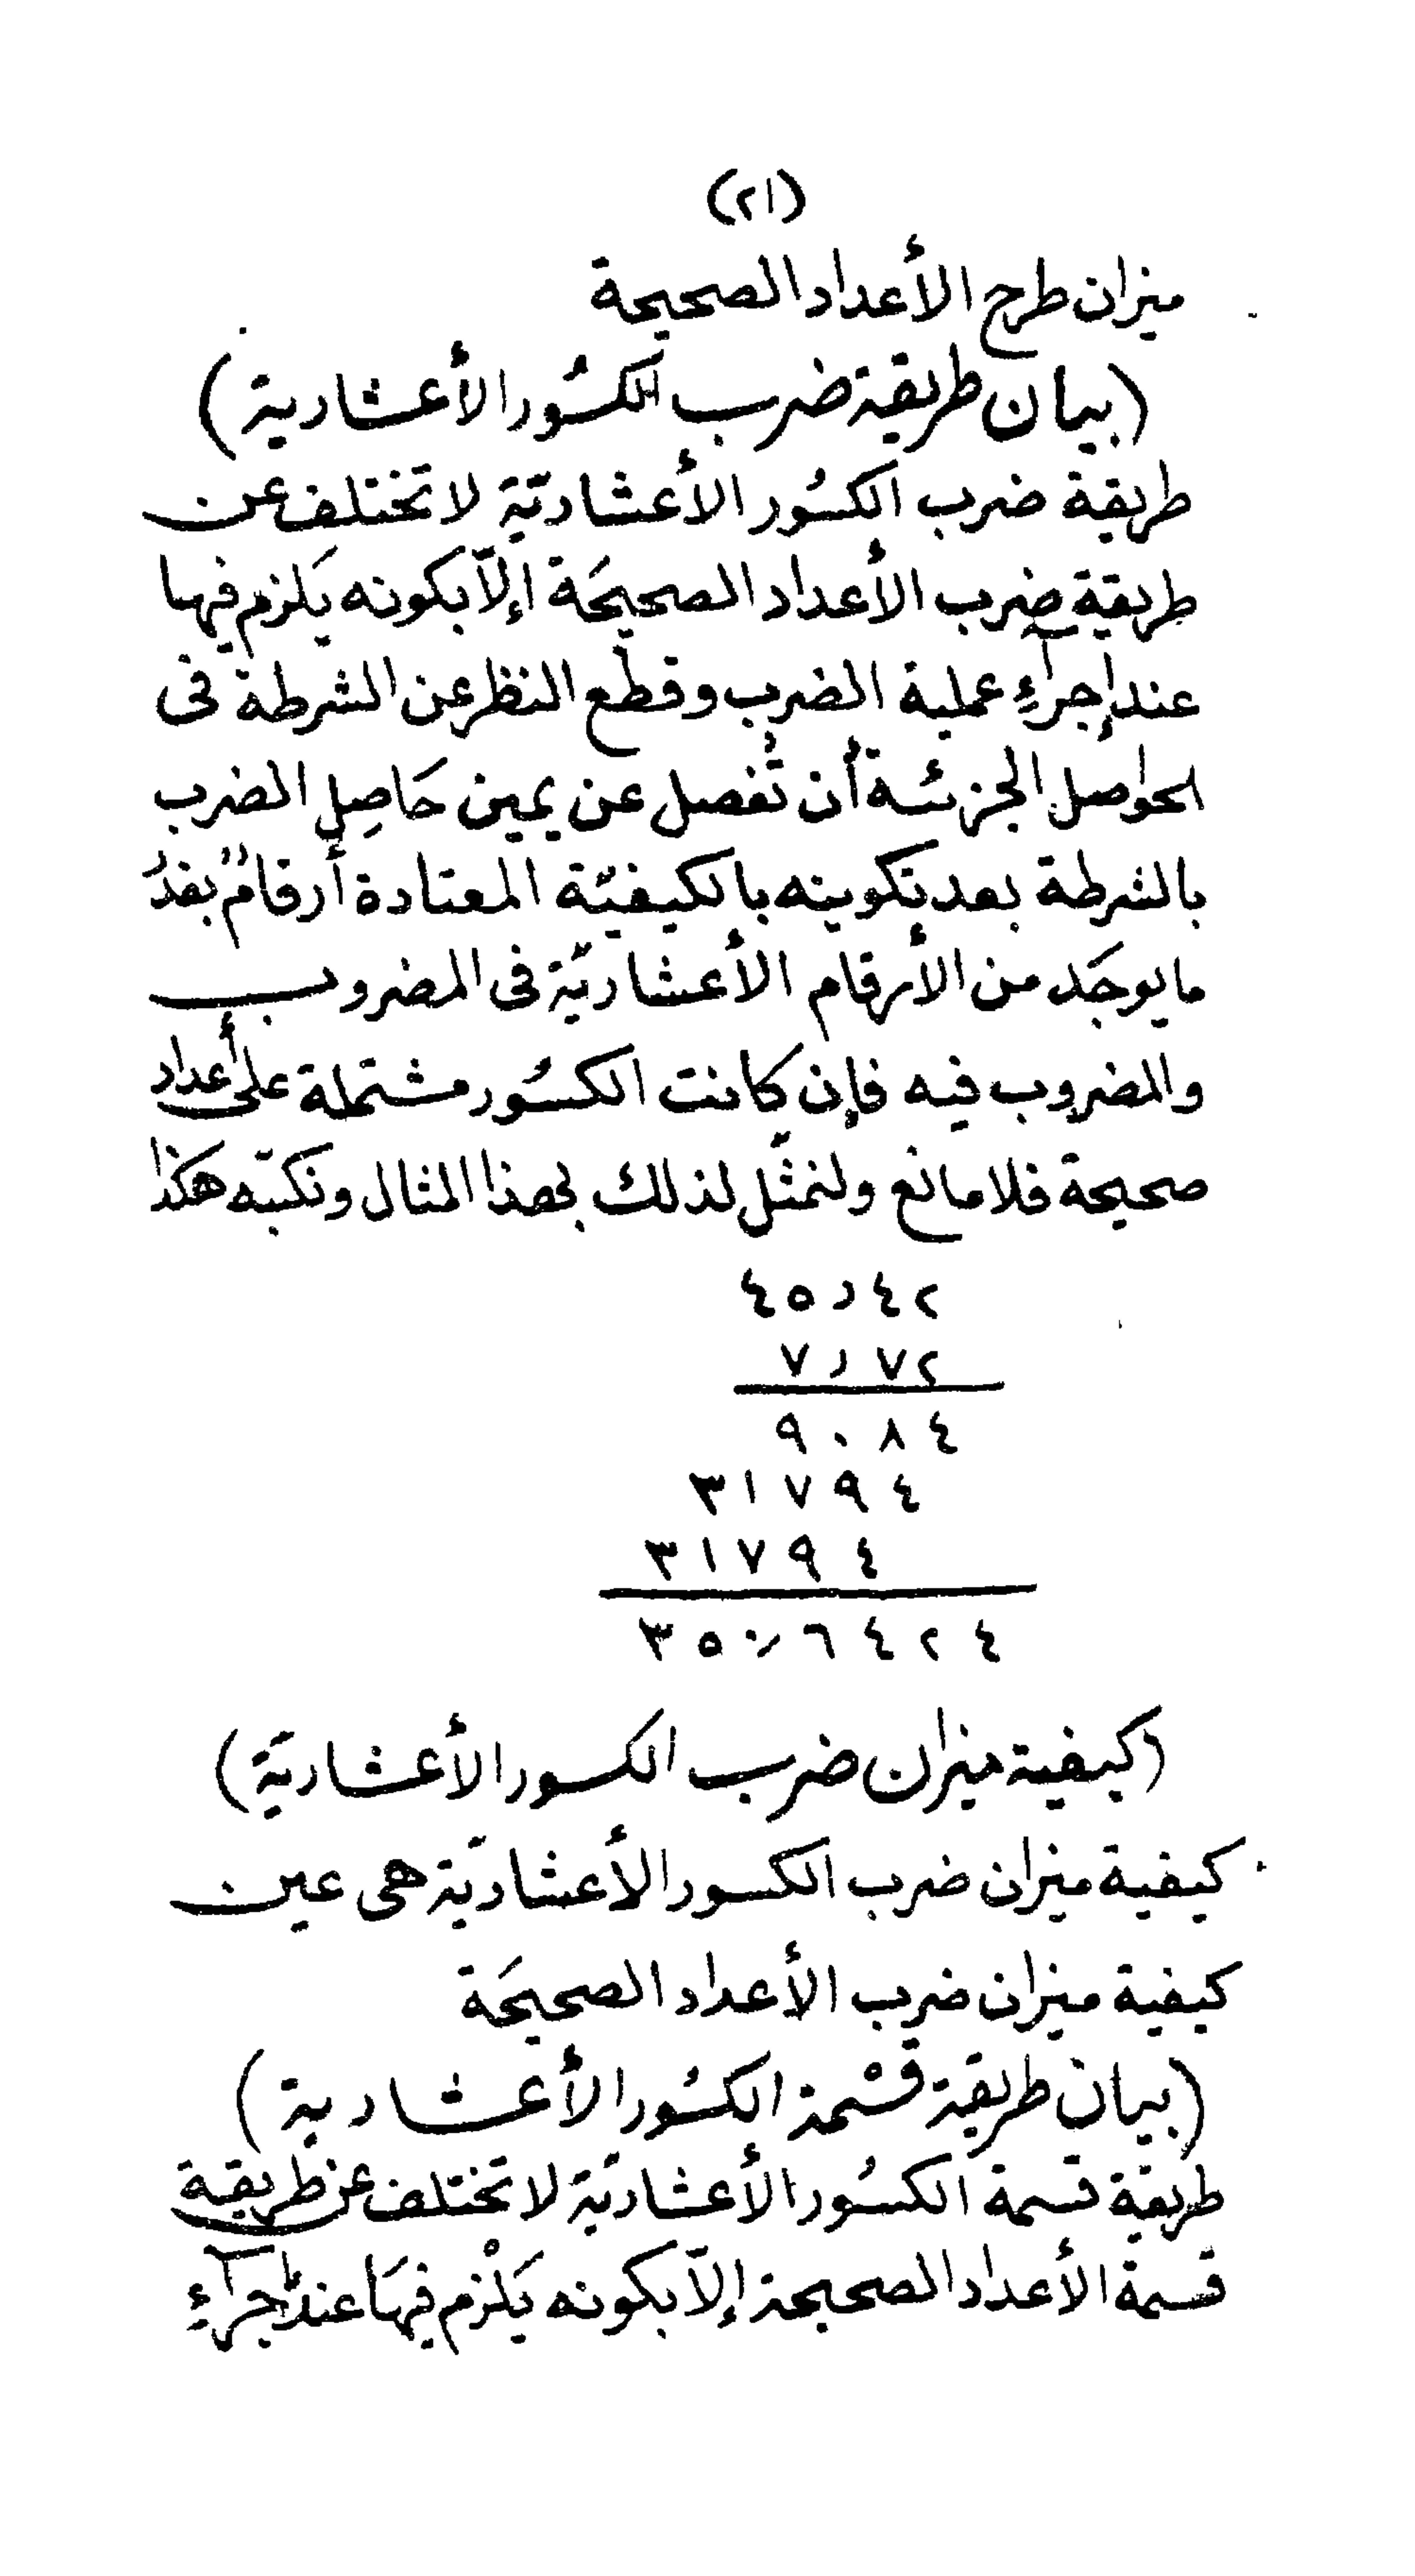 (٢١)
ميزان طرح الأعداد الصحيحة
(بيان طريقة ضرب الكسُور الأعشارية)
طريقة ضرب الكسُور الأعشاريّة لا تختلف عن
طريقة ضرب الأعداد الصحيحَة إلاّ بكونه يَلزم فيها
عند إجرآءِ عملية الضرب وقطع النظر عن الشرطة فى
الحواصل الجزئية أن تُفصل عن يمين حَاصِل الضرب
بالشرطة بعد تكوينه بالكيفيّة المعتادة أرقامٌ بقدر
ما يوجَد من الأرقام الأعشاريّة فى المضروب
والمضروب فيه فإن كانت الكسُور مشتملة على أعداد
صحيحة فلا مانع ولنمثّل لذلك بهذا المثال ونكتبه هكذا
٤٥ر٤٢
٧ر٧٢
٩٠٨٤
٣١٧٩٤
٣١٧٩٤
٣٥٠ر٦٤٢٤
(كيفية ميزان ضرب الكسور الأعشاريّة)
كيفية ميزان ضرب الكسور الأعشاريّة هى عين
كيفية ميزان ضرب الأعداد الصحيحَة
(بيان طريقة قسْمة الكسُور الأعشارية)
طريقة قسمة الكسُور الأعشاريّة لا تختلف عن طريقة
قسمة الأعداد الصحيحة إلاّ بكونه يَلْزم فيهَا عند إجرآءِ